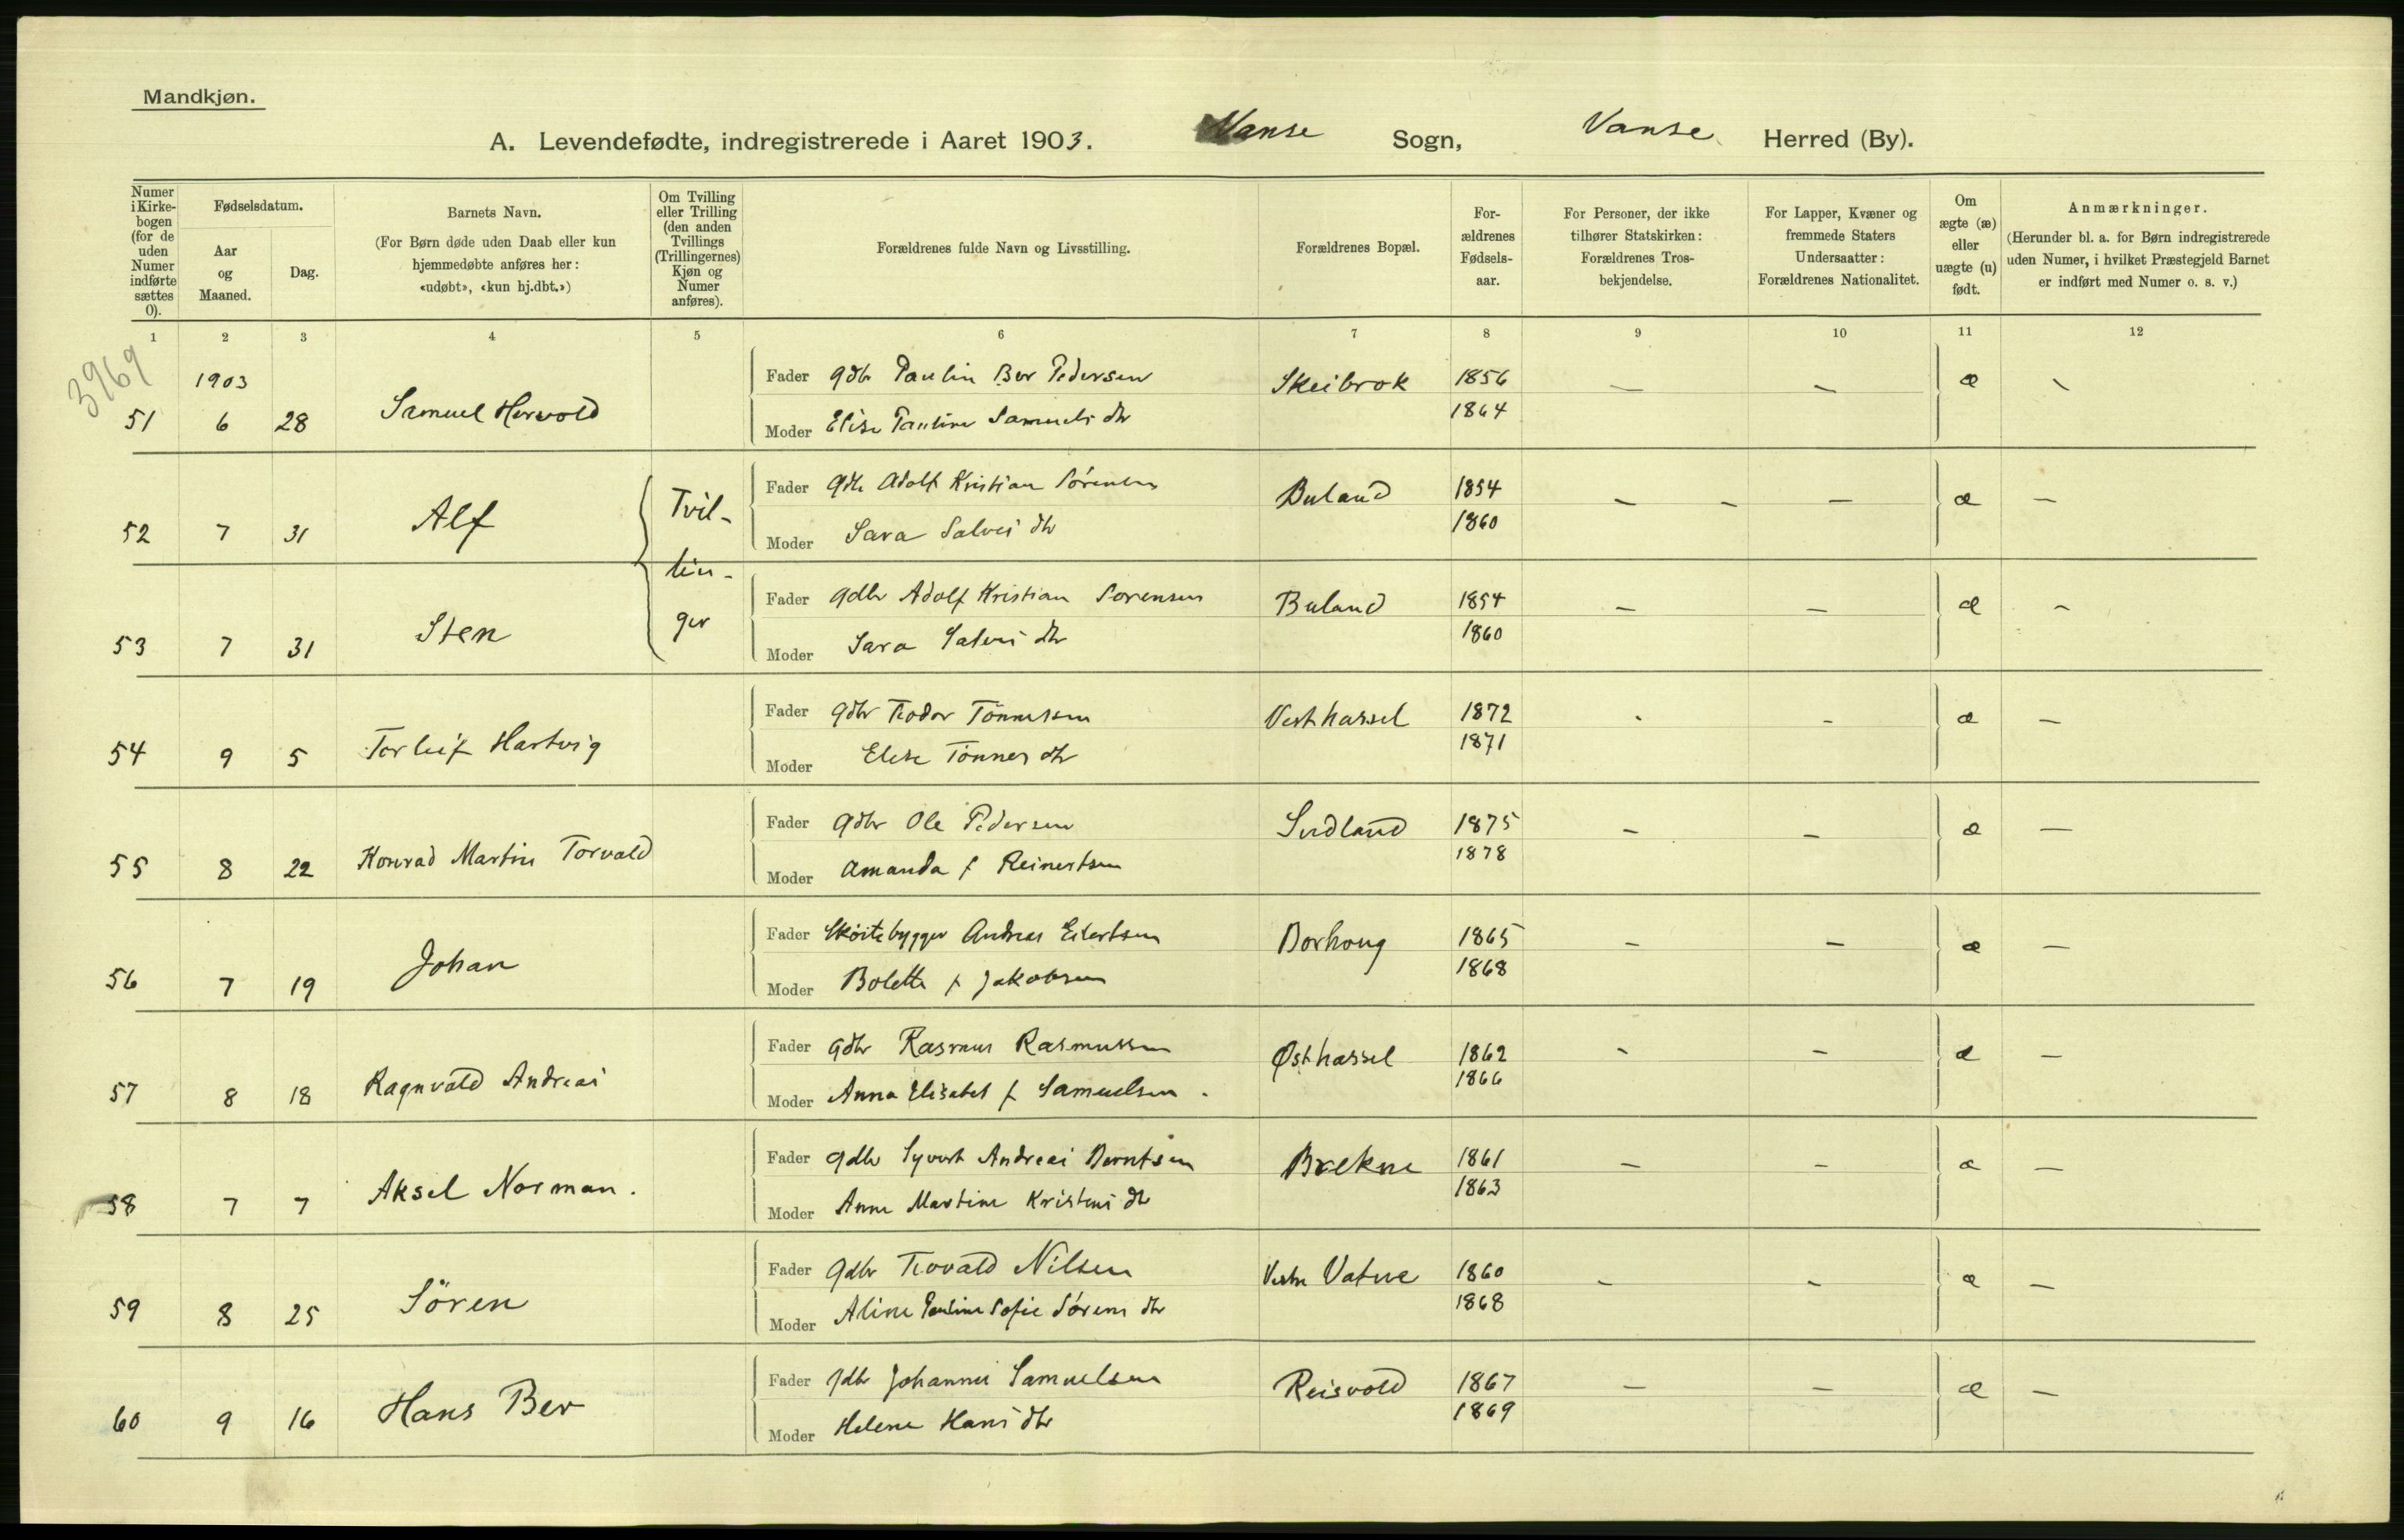 Mandkjøn.
A. Levendefødte, indregistrerede i Aaret 1903. Vanse Sogn, Vanse Herred (By).
Numer i Kirkebogen (for de uden Numer indførte sættes 0).
Fødselsdatum.
Aar og Maaned.
Dag.
Barnets Navn.
(For Børn døde uden Daab eller kun hjemmedøbte anføres her: «udøbt», «kun hj.dbt.»)
Om Tvilling eller Trilling (den anden Tvillings (Trillingernes) Kjøn og Numer anføres).
Forældrenes fulde Navn og Livsstilling.
Forældrenes Bopæl.
Forældrenes Fødselsaar.
For Personer, der ikke tilhører Statskirken: Forældrenes Trosbekjendelse.
For Lapper, Kvæner og fremmede Staters Undersaatter: Forældrenes Nationalitet.
Om ægte (æ) eller uægte (u) født.
Anmærkninger.
(Herunder bl. a. for Børn indregistrerede uden Numer, i hvilket Præstegjeld Barnet er indført med Numer o. s. v.)
1 2 3 4 5 6 7 8 9 10 11 12
3969
1903
51 6 28 Samuel Hervold
Fader Gdbr Paulin Ber Pedersen Skeibrok 1856 — — æ —
Moder Elise Pauline Samuels dtr 1864
52 7 31 Alf Tvil-
Fader Gdbr Adolf Kristian Sørensen Buland 1854 — — — æ —
Moder Sara Salves dtr 1860
lin-
53 7 31 Sten ger
Fader Gdbr Adolf Kristian Sørensen Buland 1854 — — æ —
Moder Sara Salves dtr 1860
54 9 5 Torleif Hartvig
Fader Gdbr Teodor Tönnessen Vesthassel 1872 - — æ —
Moder Elise Tönnes dtr 1871
55 8 22 Konrad Martin Torvald
Fader Gdbr Ole Pedersen Sudland 1875 — — æ —
Moder Amanda f Reinertsen 1878
56 7 19 Johan
Fader Skøitebygger Andreas Eilertsen Borhoug 1865 — — æ —
Moder Bolette f Jakobsen 1868
57 8 18 Ragnvald Andreas
Fader Gdbr Rasmus Rasmussen Østhassel 1862 — — æ —
Moder Anna Elisabet f Samuelsen 1866
58 7 7 Aksel Norman.
Fader Gdbr Syvert Andreas Berntsen Brekne 1861 — — æ —
Moder Anne Martine Kristens dtr 1863
59 8 25 Sören
Fader Gdbr Torvald Nilsen Vestre Vatne 1860 — — æ —
Moder Aline Pauline Sofie Sørens dtr 1868
60 9 16 Hans Ber
Fader Gdbr Johannes Samuelsen Reisvold 1867 — — æ —
Moder Helene Hans dtr 1869